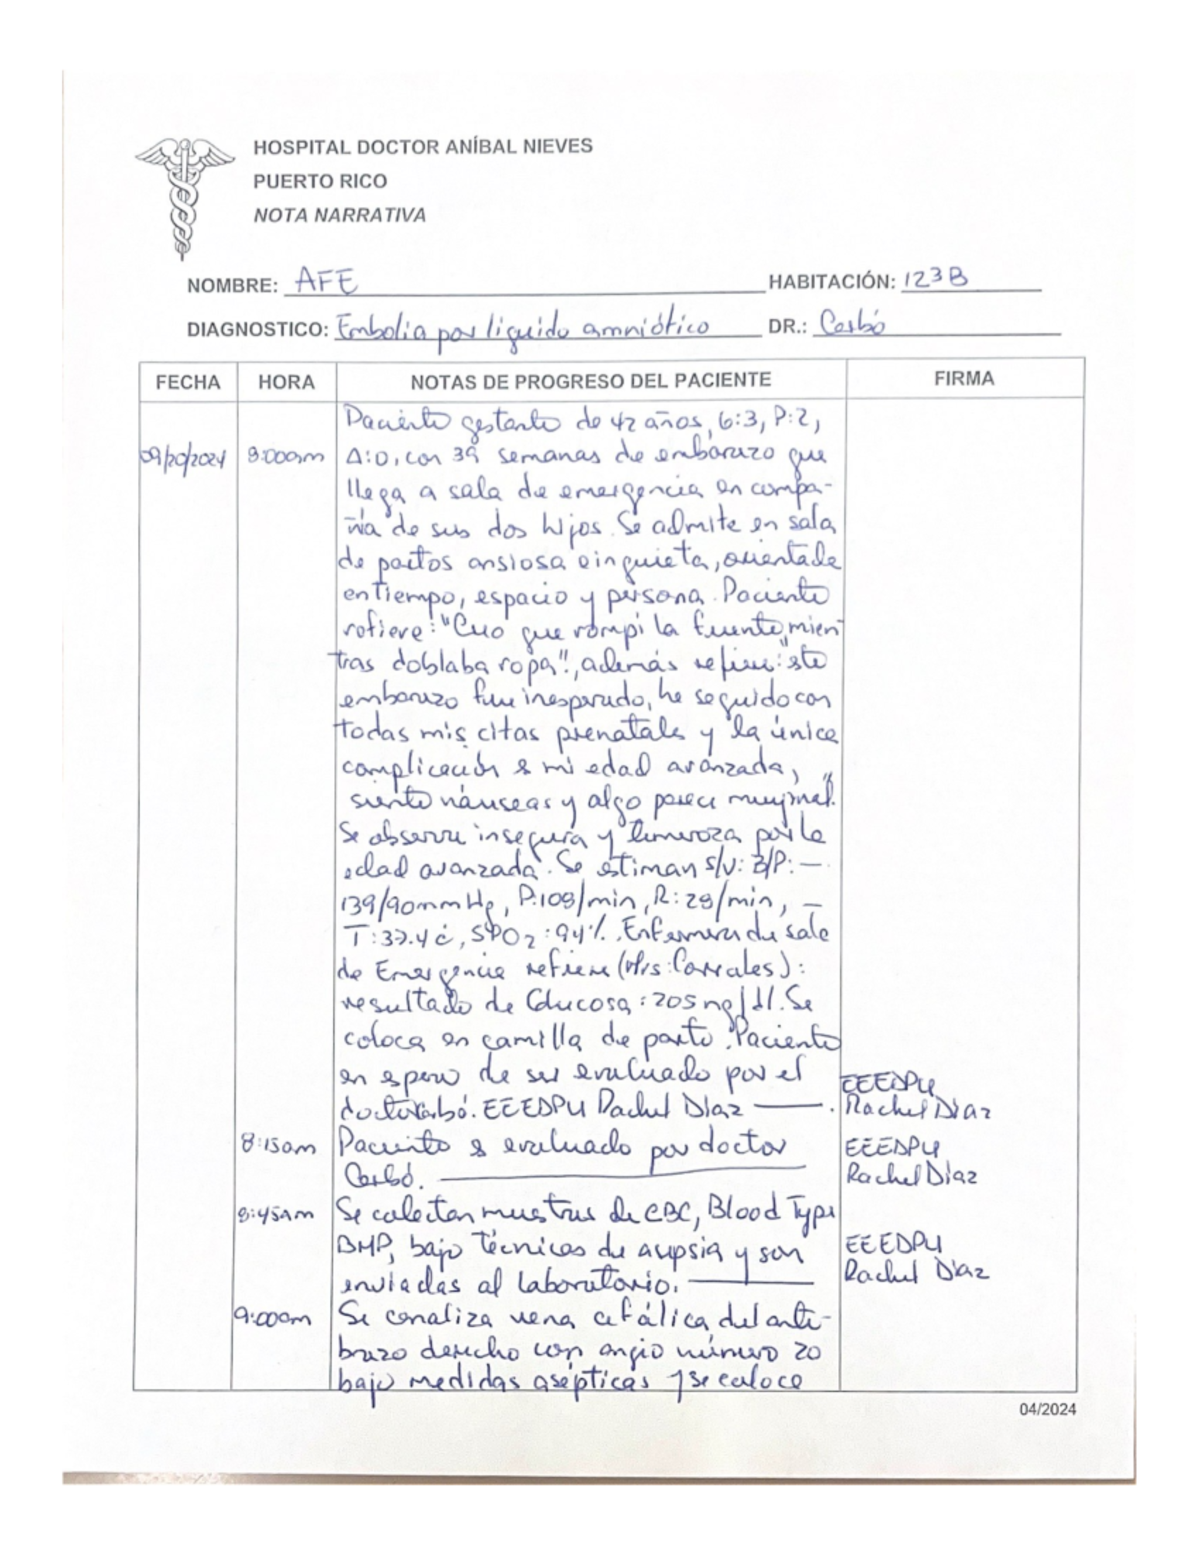 HOSPITAL DOCTOR ANÍBAL NIEVES
PUERTO RICO
NOTA NARRATIVA
NOMBRE: AFE HABITACIÓN: 123B
DIAGNOSTICO: Embolia por liquido amniótico DR.: Carbó
FECHA HORA NOTAS DE PROGRESO DEL PACIENTE FIRMA
Paciente gestante de 42 años, G:3, P:2,
09/20/2024 8:00am A:0, con 39 semanas de embarazo que
llega a sala de emergencia en compa-
ñia de sus dos hijos. Se admite en sala
de partos ansiosa e inquieta, orientada
en tiempo, espacio y persona. Paciente
refiere: "Creo que rompi la fuente, mien
tras doblaba ropa", además refiere: "este
embarazo fue inesperado, he seguido con
todas mis citas prenatales y la única
complicación es mi edad avanzada,
siento náuseas y algo parece muy mal."
Se observa insegura y temeroza por la
edad avanzada. Se estiman s/v: B/P: —
139/90mmHg, P:108/min, R:28/min, —
T:37.4°c, SPO2:94%. Enfermera de sala
de Emergencia refiere (Mrs. Corrales):
resultado de Glucosa: 205 mg/dl. Se
coloca en camilla de parto. Paciente
en espera de ser evaluado por el
doctor Carbó. EEEDPU Rachel Díaz ——. EEEDPU
Rachel Díaz
8:15am Paciente es evaluado por doctor EEEDPU
Carbó. —— Rachel Díaz
8:45am Se colectan muestras de CBC, Blood Type
BMP, bajo técnicas de asepsia y son EEEDPU
enviadas al laboratorio. —— Rachel Díaz
9:00am Se canaliza vena cefálica del ante-
brazo derecho con angio número 20
bajo medidas asépticas y se coloca
04/2024